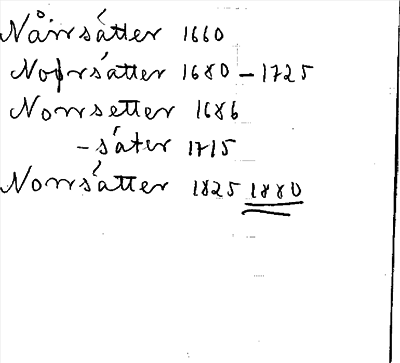 Nårrsätter 1660
Norrsätter 1680 - 1725
Norrsetter 1686
- säter 1715
Norrsätter 1825 1880